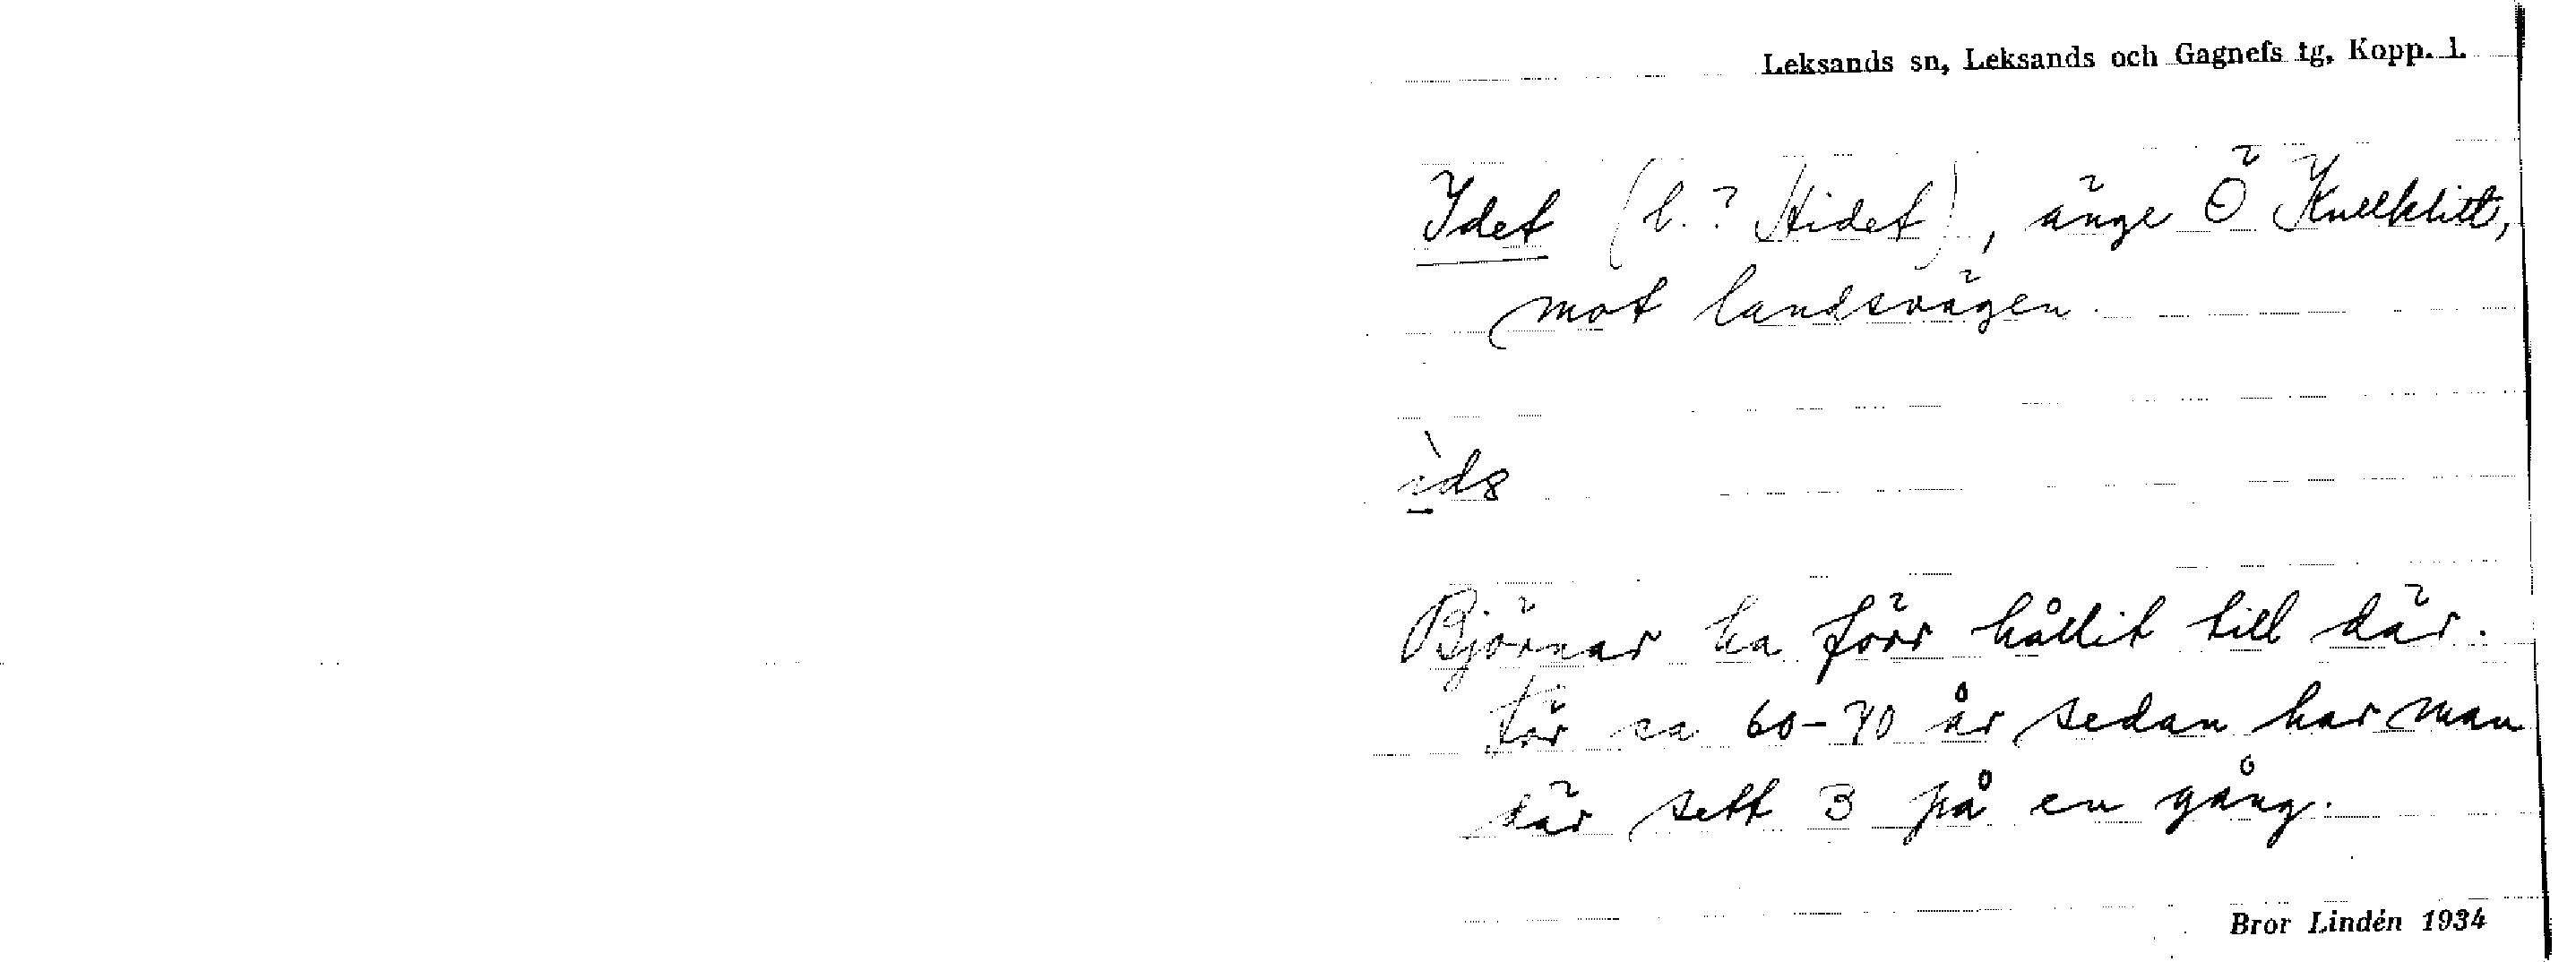 Leksands sn, Leksands och Gagnefs tg, Kopp. l.
Idet (l. ? Hidet), änge Ö Kullklitt,
mot landsvägen.
ìdɘ
Björnar ha förr hållit till där.
För ca 60-70 år sedan har man
där sett 3 på en gång.
Bror Lindén 1934